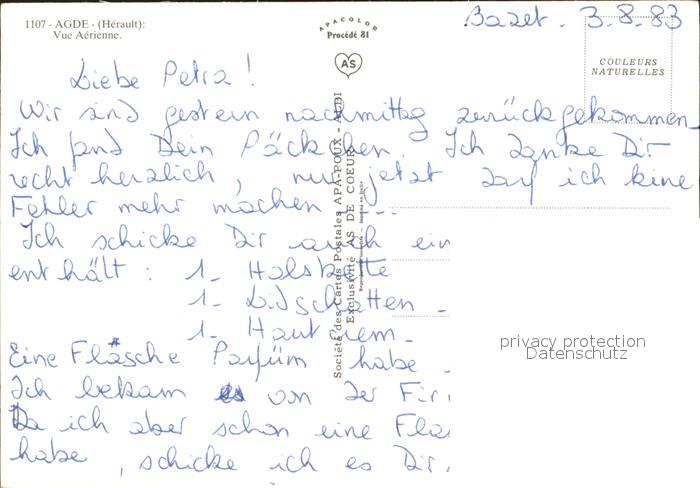 1107 - AGDE - (Hérault):
Vue Aérienne.
APACOLOR
Procédé 81
AS
COULEURS
NATURELLES
Bazet. 3.8.83
Liebe Petra!
Wir sind gestern nachmittag zurückgekommen
Ich fand Dein Päckchen. Ich danke Dir
recht herzlich, nur jetzt darf ich keine
Fehler mehr machen ---
Ich schicke Dir auch ein
enthält: 1- Halskette
1- Lidschatten -
1- Hautcrem -
Eine Flasche Parfüm habe
Ich bekam es von der Fir
Da ich aber schon eine Flas
habe, schicke ich es Dir.
Société des Cartes Postales APA-POUX - AGDE
Exclusivité AS DE COEUR
privacy protection
Datenschutz